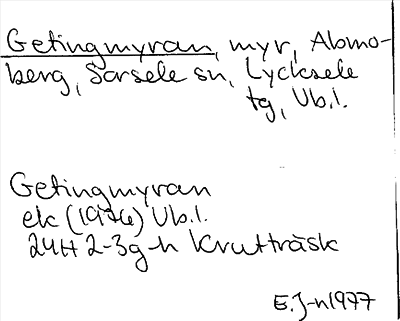 Getingmyran, myr, Abmo-
berg, Sorsele sn, Lycksele
tg, Vb.l.
Getingmyran
ek (1976) Vb.l.
24H 2-3g-h Krutträsk
E.J-n 1977